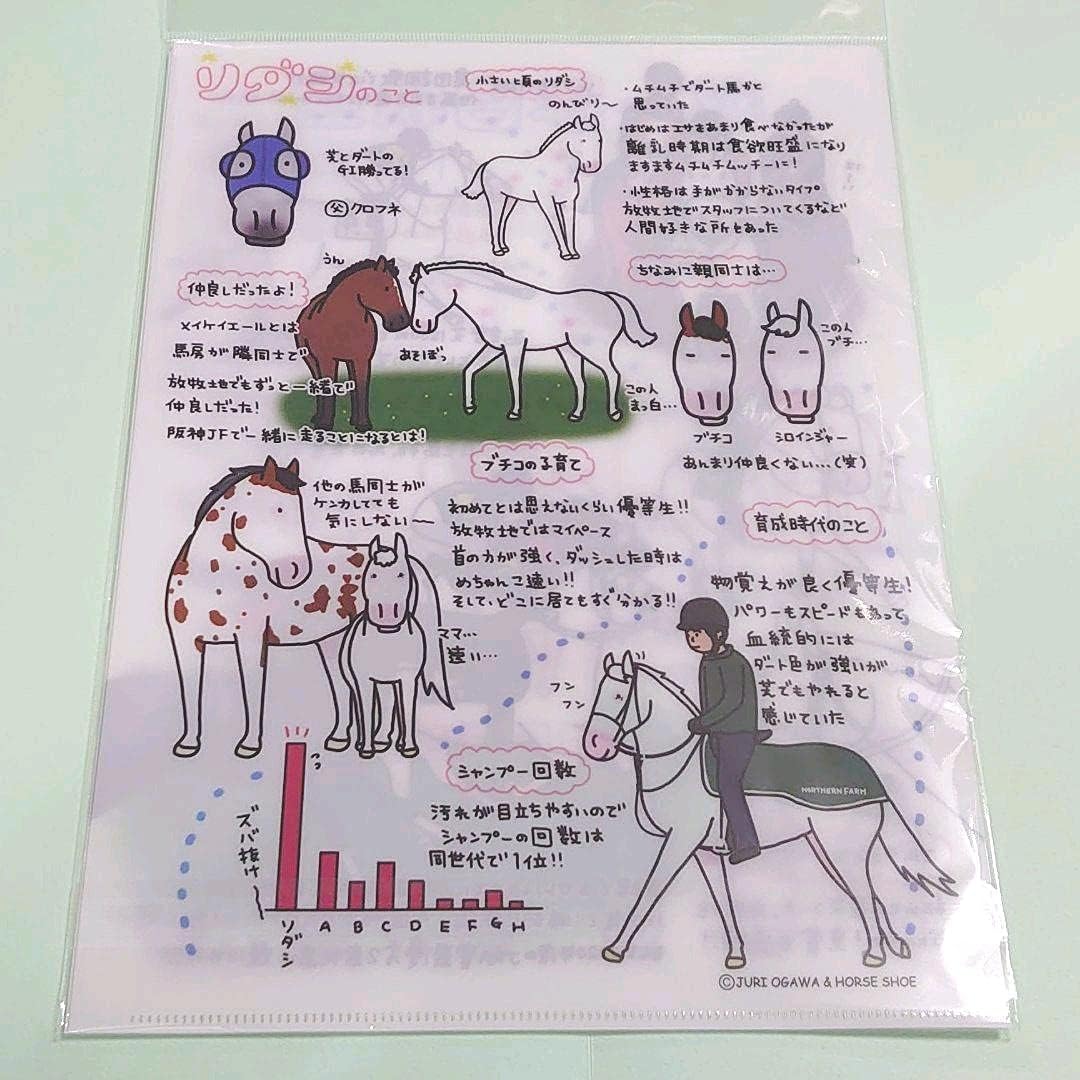 ソダシのこと
芝とダートの
GI勝ってる!
父 クロフネ
小さい頃のソダシ
のんびり〜
・ムチムチでダート馬かと
思っていた
・はじめはエサをあまり食べなかったが
離乳時期は食欲旺盛になり
ますますムチムチムッチーに!
・性格は手がかからないタイプ
放牧地でスタッフについてくるなど
人間好きな所もあった
仲良しだったよ!
メイケイエールとは
馬房が隣同士で
放牧地でもずっと一緒で
仲良しだった!
阪神JFで一緒に走ることになるとは!
うん
あそぼっ
ちなみに親同士は…
この人
ブチ…
この人
まっ白…
ブチコ
シロインジャー
あんまり仲良くない…(笑)
ブチコの子育て
他の馬同士が
ケンカしてても
気にしない〜
初めてとは思えないくらい優等生!!
放牧地ではマイペース
首の力が強く、ダッシュした時は
めちゃんこ速い!!
そして、どこに居てもすぐ分かる!!
ママ…
速い…
育成時代のこと
物覚えが良く優等生!
パワーもスピードもあって
血統的には
ダート色が強いが
芝でもやれると
感じていた
フン
フン
NORTHERN FARM
シャンプー回数
汚れが目立ちやすいので
シャンプーの回数は
同世代で1位!!
ズバ抜け〜
ソダシ
A B C D E F G H
©JURI OGAWA & HORSE SHOE